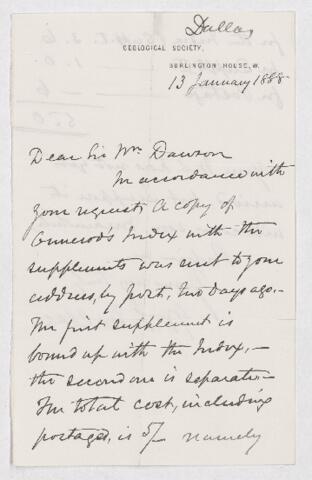 Dallas
GEOLOGICAL SOCIETY,
BURLINGTON HOUSE, W.
13 January 1888
Dear Sir Wm Dawson
In accordance with
your request, a copy of
Ormerod's Index with the
supplements was sent to your
address, by post, two days ago.-
The first supplement is
bound up with the Index,-
the second one is separate.-
The total cost, including
postage, is 5/- namely